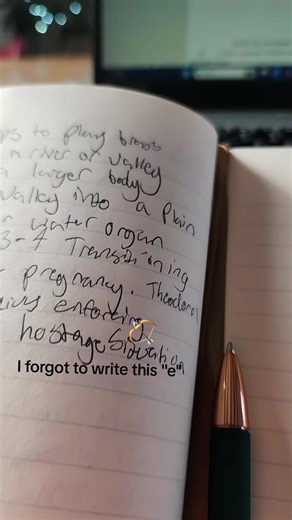 to play brass
a river or valley
a larger body
valley into a plain
water organ
3-7 Transitioning
pregnancy. Theodora
enforcing
hostage Situation
I forgot to write this "e"